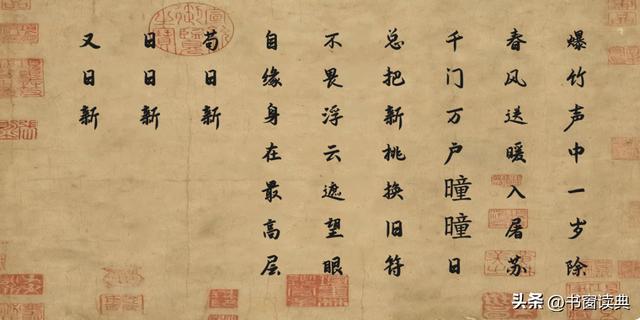 爆竹声中一岁除
春风送暖入屠苏
千门万户曈曈日
总把新桃换旧符
不畏浮云遮望眼
自缘身在最高层
苟日新
日日新
又日新
头条 @书窗读典